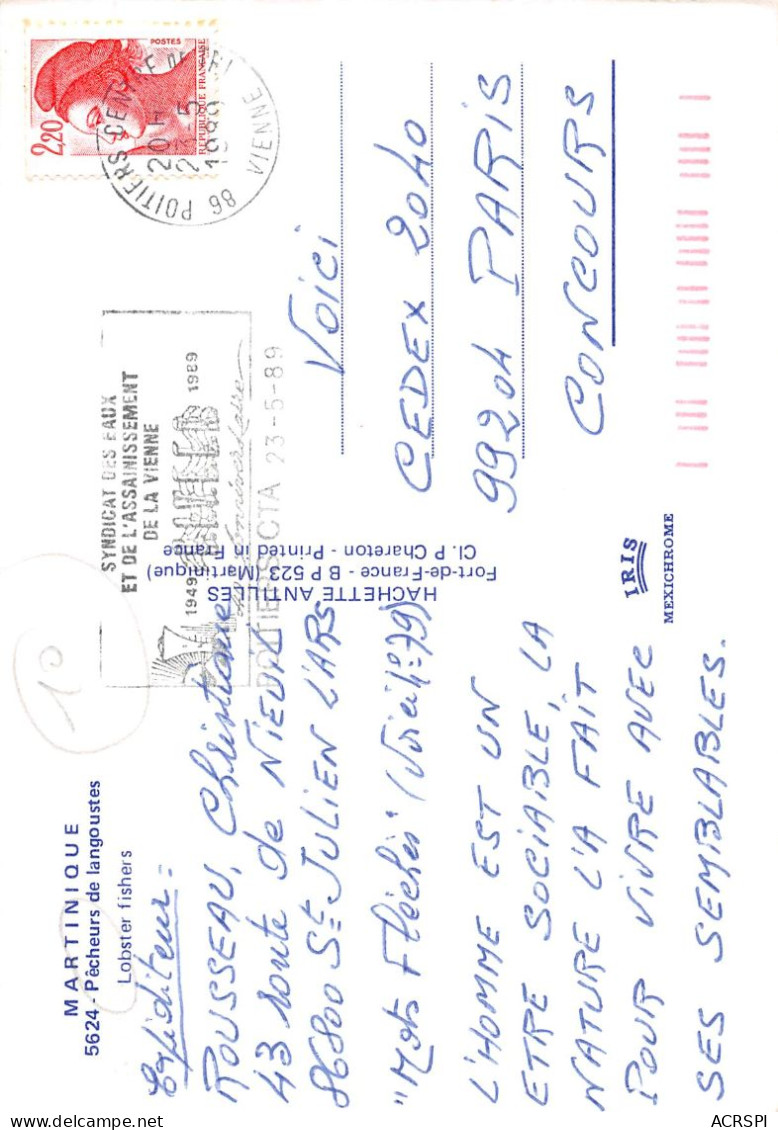 MARTINIQUE
5624 - Pêcheurs de langoustes
Lobster fishers
Expéditeur =
ROUSSEAU, Christiane
43 route de NIEUIL
86800 St JULIEN L'ARS
"Mots Fléchés" (Voici p: 79)
L'HOMME EST UN
ETRE SOCIABLE, LA
NATURE L'A FAIT
POUR VIVRE AVEC
SES SEMBLABLES.
10
HACHETTE ANTILLES
Fort-de-France - B P 523 (Martinique)
Cl. P Chareton - Printed in France
IRIS
MEXICHROME
SYNDICAT DES EAUX
ET DE L'ASSAINISSEMENT
DE LA VIENNE
1949 1989
POITIERS CTA 23-5-89
POSTES
2,20
REPUBLIQUE FRANÇAISE
86 POITIERS CENTRE
20 H
23-5
1989
VIENNE
Voici
CEDEX 2040
99204 PARIS
CONCOURS
ACRSPI